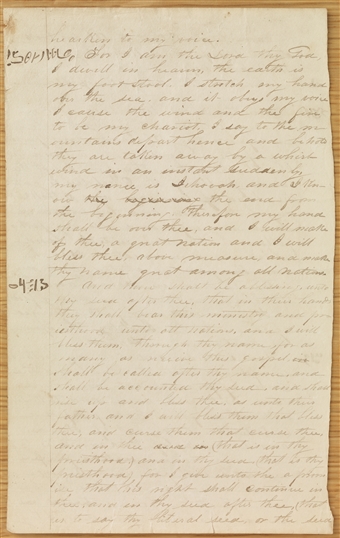 hearken to my voice.
For I am the Lord thy God
I dwell in heaven, the earth is
my foot stool. I stretch my hand
over the sea, and it obeys my voice
I cause the wind and the fire
to be my chariot, I say to the mo
untains depart hence and behold
they are taken away by a whirl
wind in an instant suddenly
my name is Jehovah, and I kn
ow the end from
the beginning therefore my hand
shall be over thee, and I will make
of thee, a great nation and I will
bless thee, above measure, and make
thy name great among all nations
And thou shall be a blessing unto
thy seed after thee, that in their hands
they shall bear this ministry and pri
esthood unto all nations, and I will
bless them, through thy name, for as
many as receive this gospel
shall be called after thy name, and
shall be accounted thy seed, and shall
rise up and bless thee, as unto their
father, and I will bless them that bless
thee, and curse them that curse thee,
and in thee (that is in thy
priesthood) and in thy seed that is thy
priesthood, for I give unto thee a prom
ise that this right shall continue in
thee, and in thy seed after thee, (that
is to say thy literal seed, or the seed